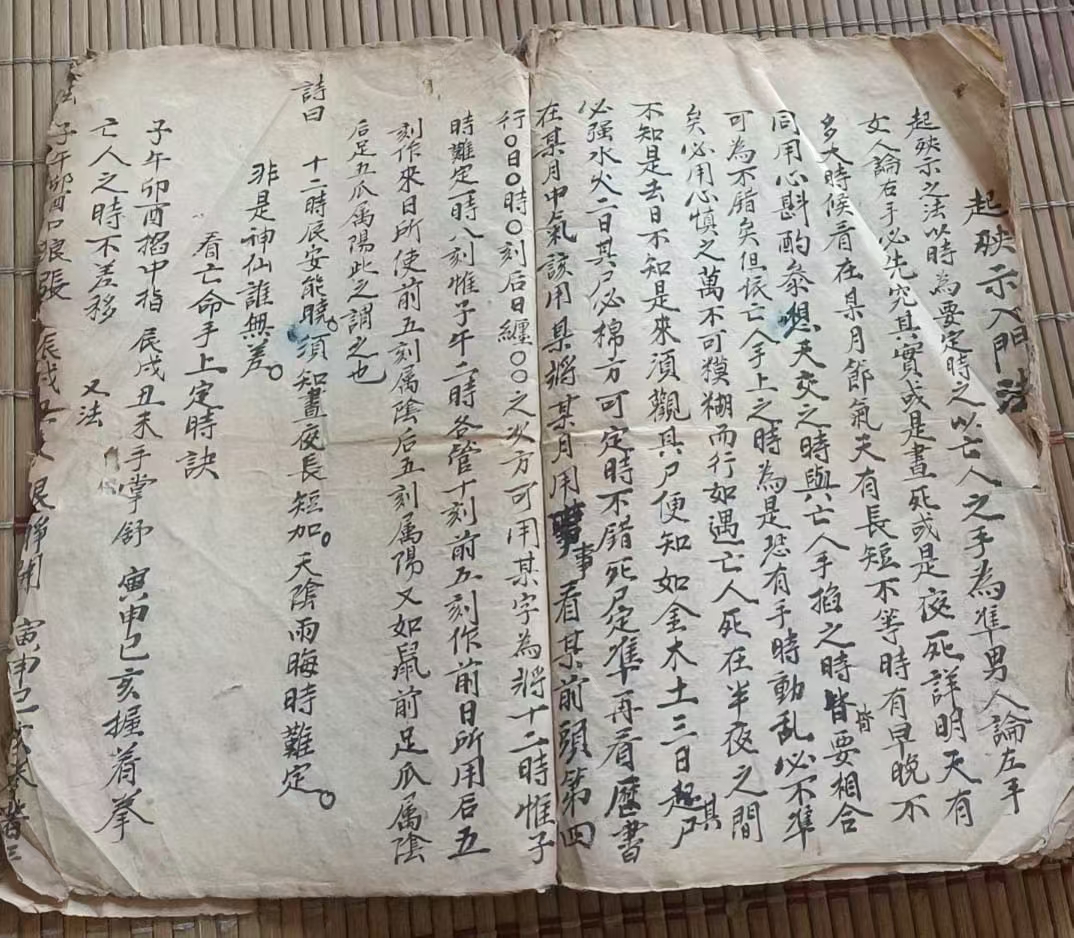 起殃示入門法
起殃示之法以時為要定時之以亡人之手為準男人論左手
女人論右手必先究其實或是晝死或是夜死詳明天有
多大時候看在某月節氣天有長短不等時有早晚不
同用心斟酌叅想天交之時與亡人手掐之時皆要相合
皆
可為不錯矣但依亡人手上之時為是恐有手時動乱必不準
矣必用心慎之萬不可糢糊而行如遇亡人死在半夜之間其
不知是去日不知是來須觀其尸便知如金木土三日起尸
必强水火二日其尸必棉方可定時不錯死尸定準再看曆書
在某月中氣該用某將某月用事看某前頭第四
行〇日〇時〇刻后日纏〇〇之次方可用某字為將十二時惟子
時難定一時八刻惟子午二時各管十刻前五刻作前日所用后五
刻作來日所使前五刻属陰后五刻属陽又如鼠前足瓜属陰
后足五瓜属陽此之謂之也
詩曰 十二時辰安能曉。須知晝夜長短加。天陰雨晦時難定。
非是神仙誰無差。
看亡命手上定時訣
子午卯酉掐中指 辰戌丑未手掌舒 寅申巳亥握着拳
亡人之時不差移 又法
子午卯酉口張 辰戌丑未眼睜開 寅申巳亥